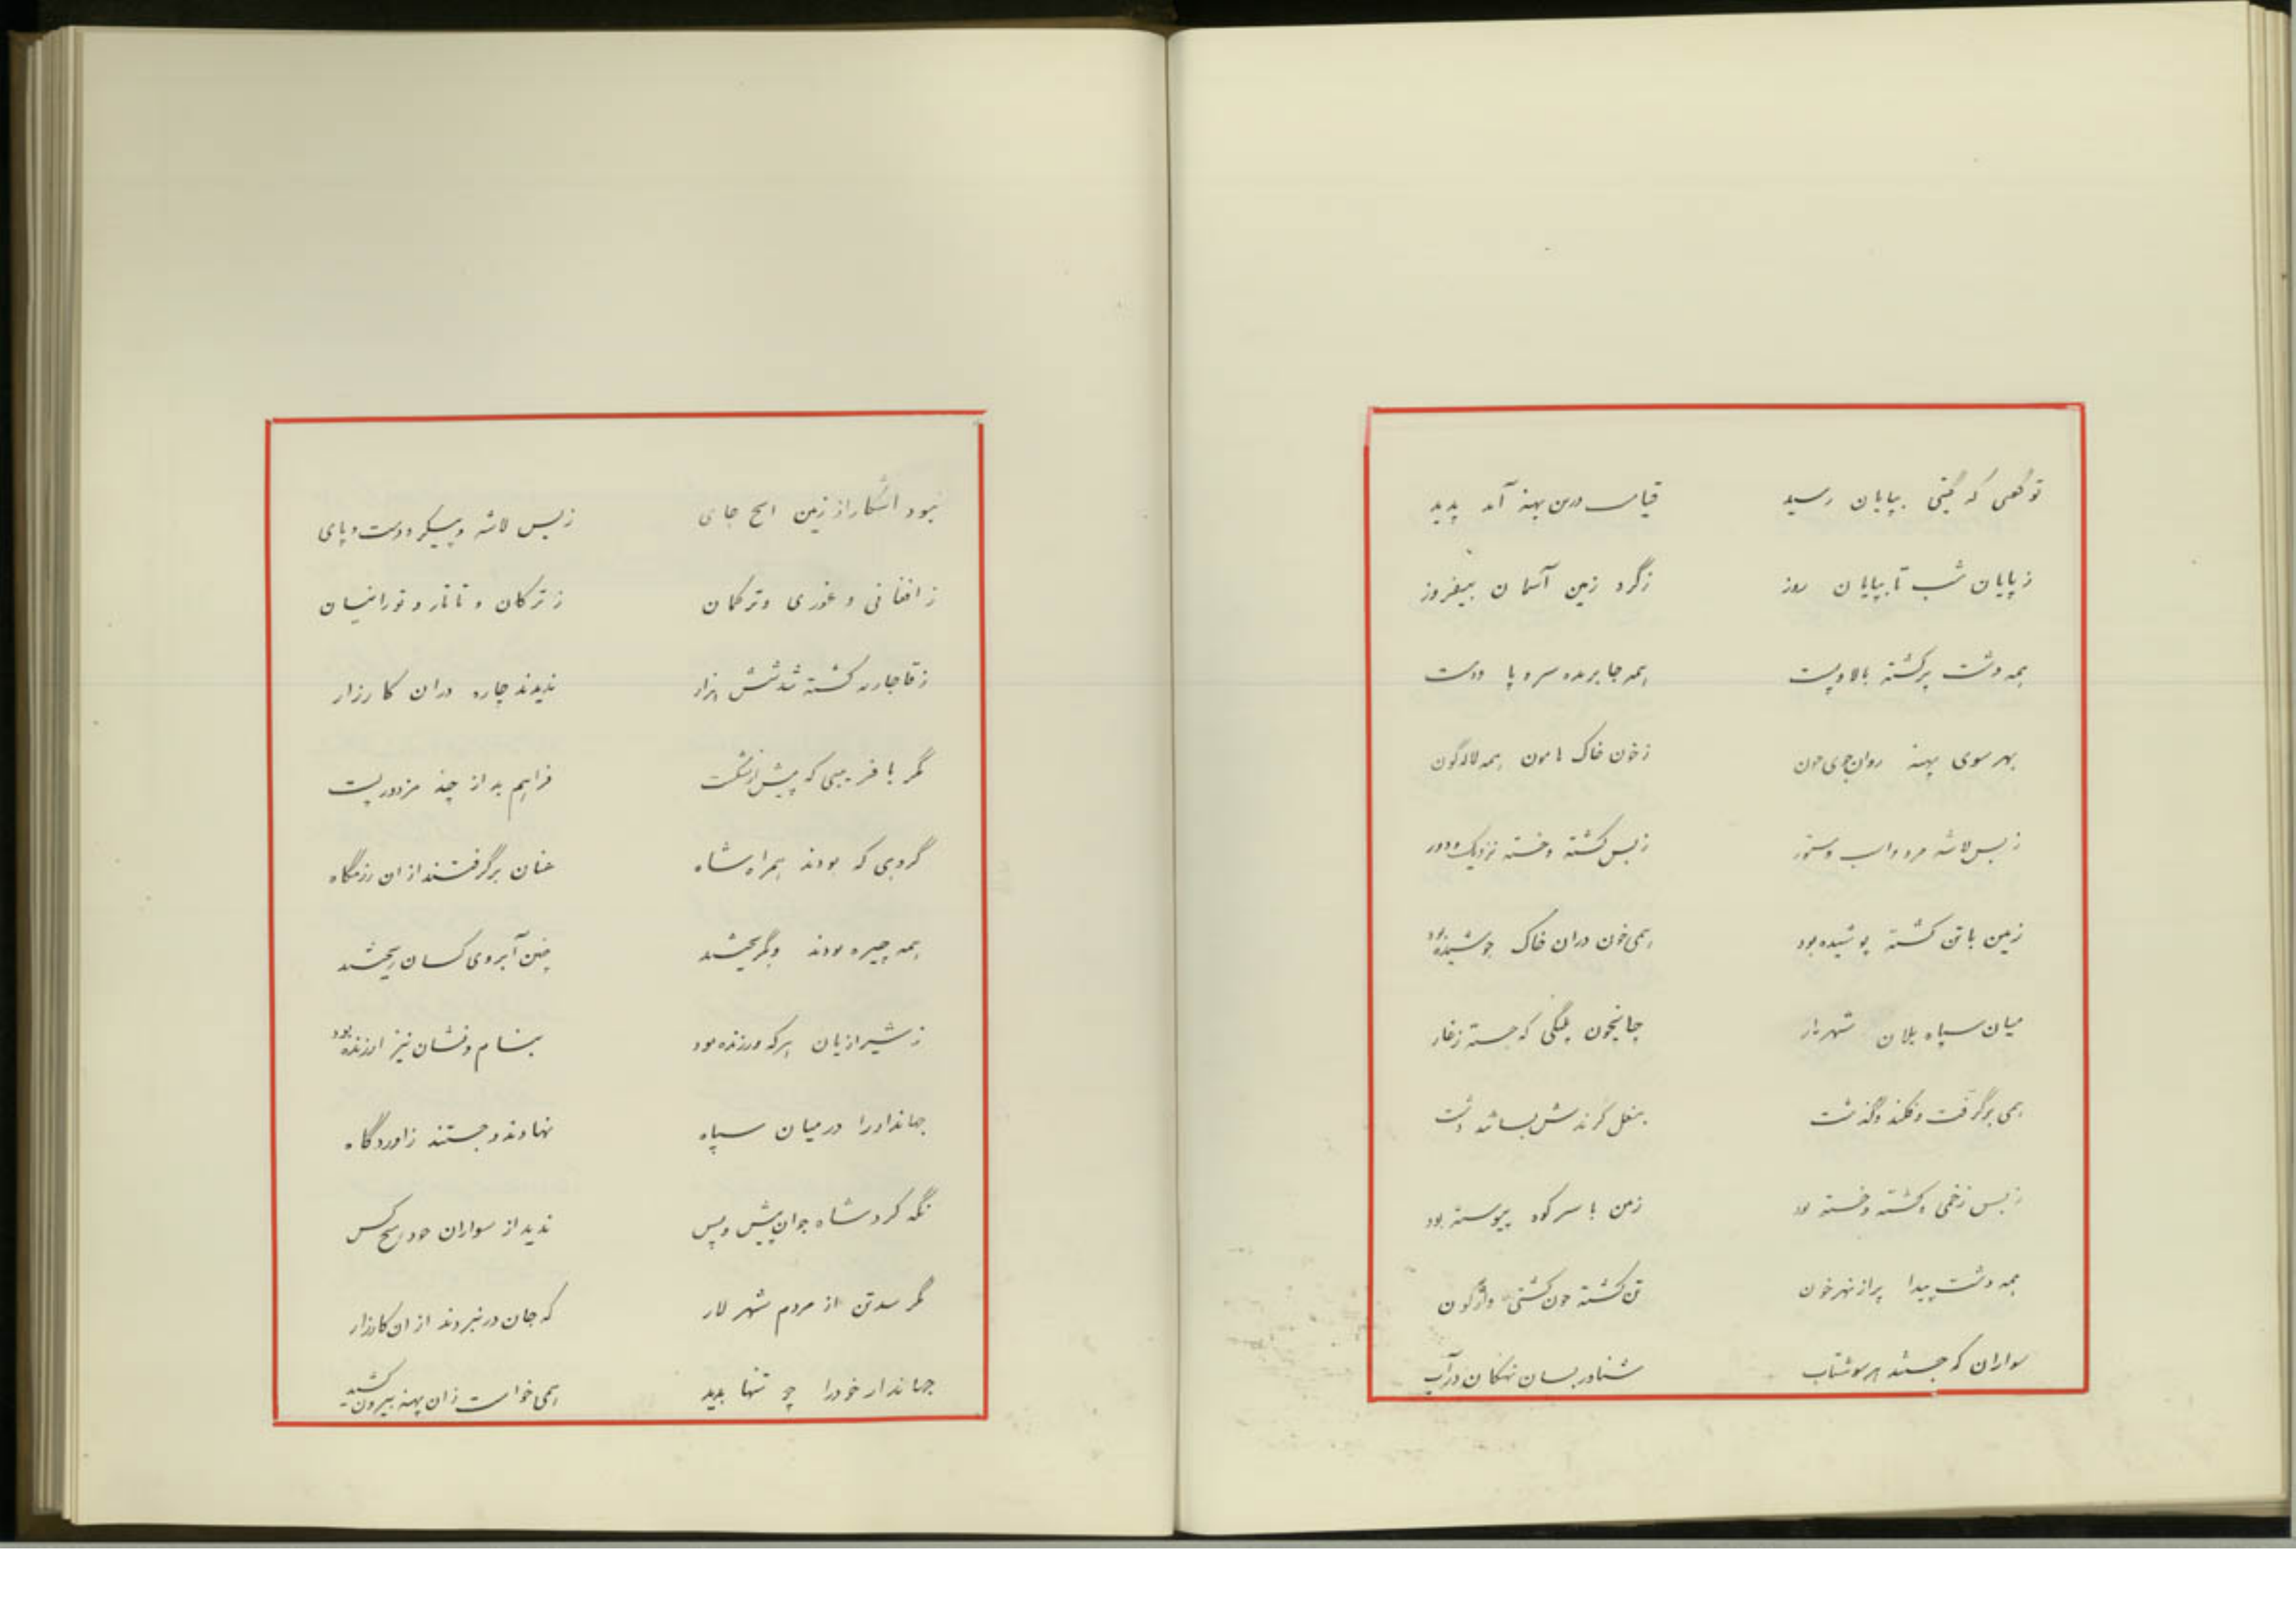 تو گفتی که گیتی بپایان رسید قیامت درین پهنه آمد پدید
ز پایان شب تا بپایان روز ز گرد زمین آسمان
همه دشت پر کشته بالا و پست همه جا بریده سر و پا و دست
بهر سوی پهنه روان جوی خون ز خون خاک هامون همه لاله گون
ز بس لاشه مرد و اسب و ستور ز بس کشته و خسته نزدیک و دور
زمین با تن کشته پوشیده بود همی خون دران خاک جوشیده بود
میان سپاه یلان شهریار چنانچون پلنگی که جسته ز غار
همی برگرفت و فکند و گذشت بنعل
ز بس زخمی و کشته و خسته بود زمین با سر کوه پیوسته بود
همه دشت پیدا پر از نهر خون تن کشته چون کشتی واژگون
سواران که جستند هر سو شتاب شناور بسان نهنگان در آب
نبود آشکارا ز زمین هیچ جای ز بس لاشه و پیکر و دست و پای
ز افغانی و غوری و ترکمان ز ترکان و تاتار و تورانیان
ز قاجاریه کشته شد شش هزار ندیدند چاره دران کارزار
مگر با فریبی که پیش از نشست فراهم بد از چند مزدور پست
گروهی که بودند همراه شاه عنان برگرفتند از ان رزمگاه
همه چیره بودند و بگریختند چنین آبروی کسان ریختند
ز شیرازیان هر که ورزنده بود بنام و نشان نیز ارزنده بود
جهاندار را در میان سپاه نهادند و جستند ز آوردگاه
نگه کرد شاه جوان پیش و پس ندید از سواران خود هیچ کس
مگر سه تن از مردم شهر لار که جان در نبردند از ان کارزار
جهاندار خود را چو تنها بدید همی خواست زان پهنه بیرون کشید